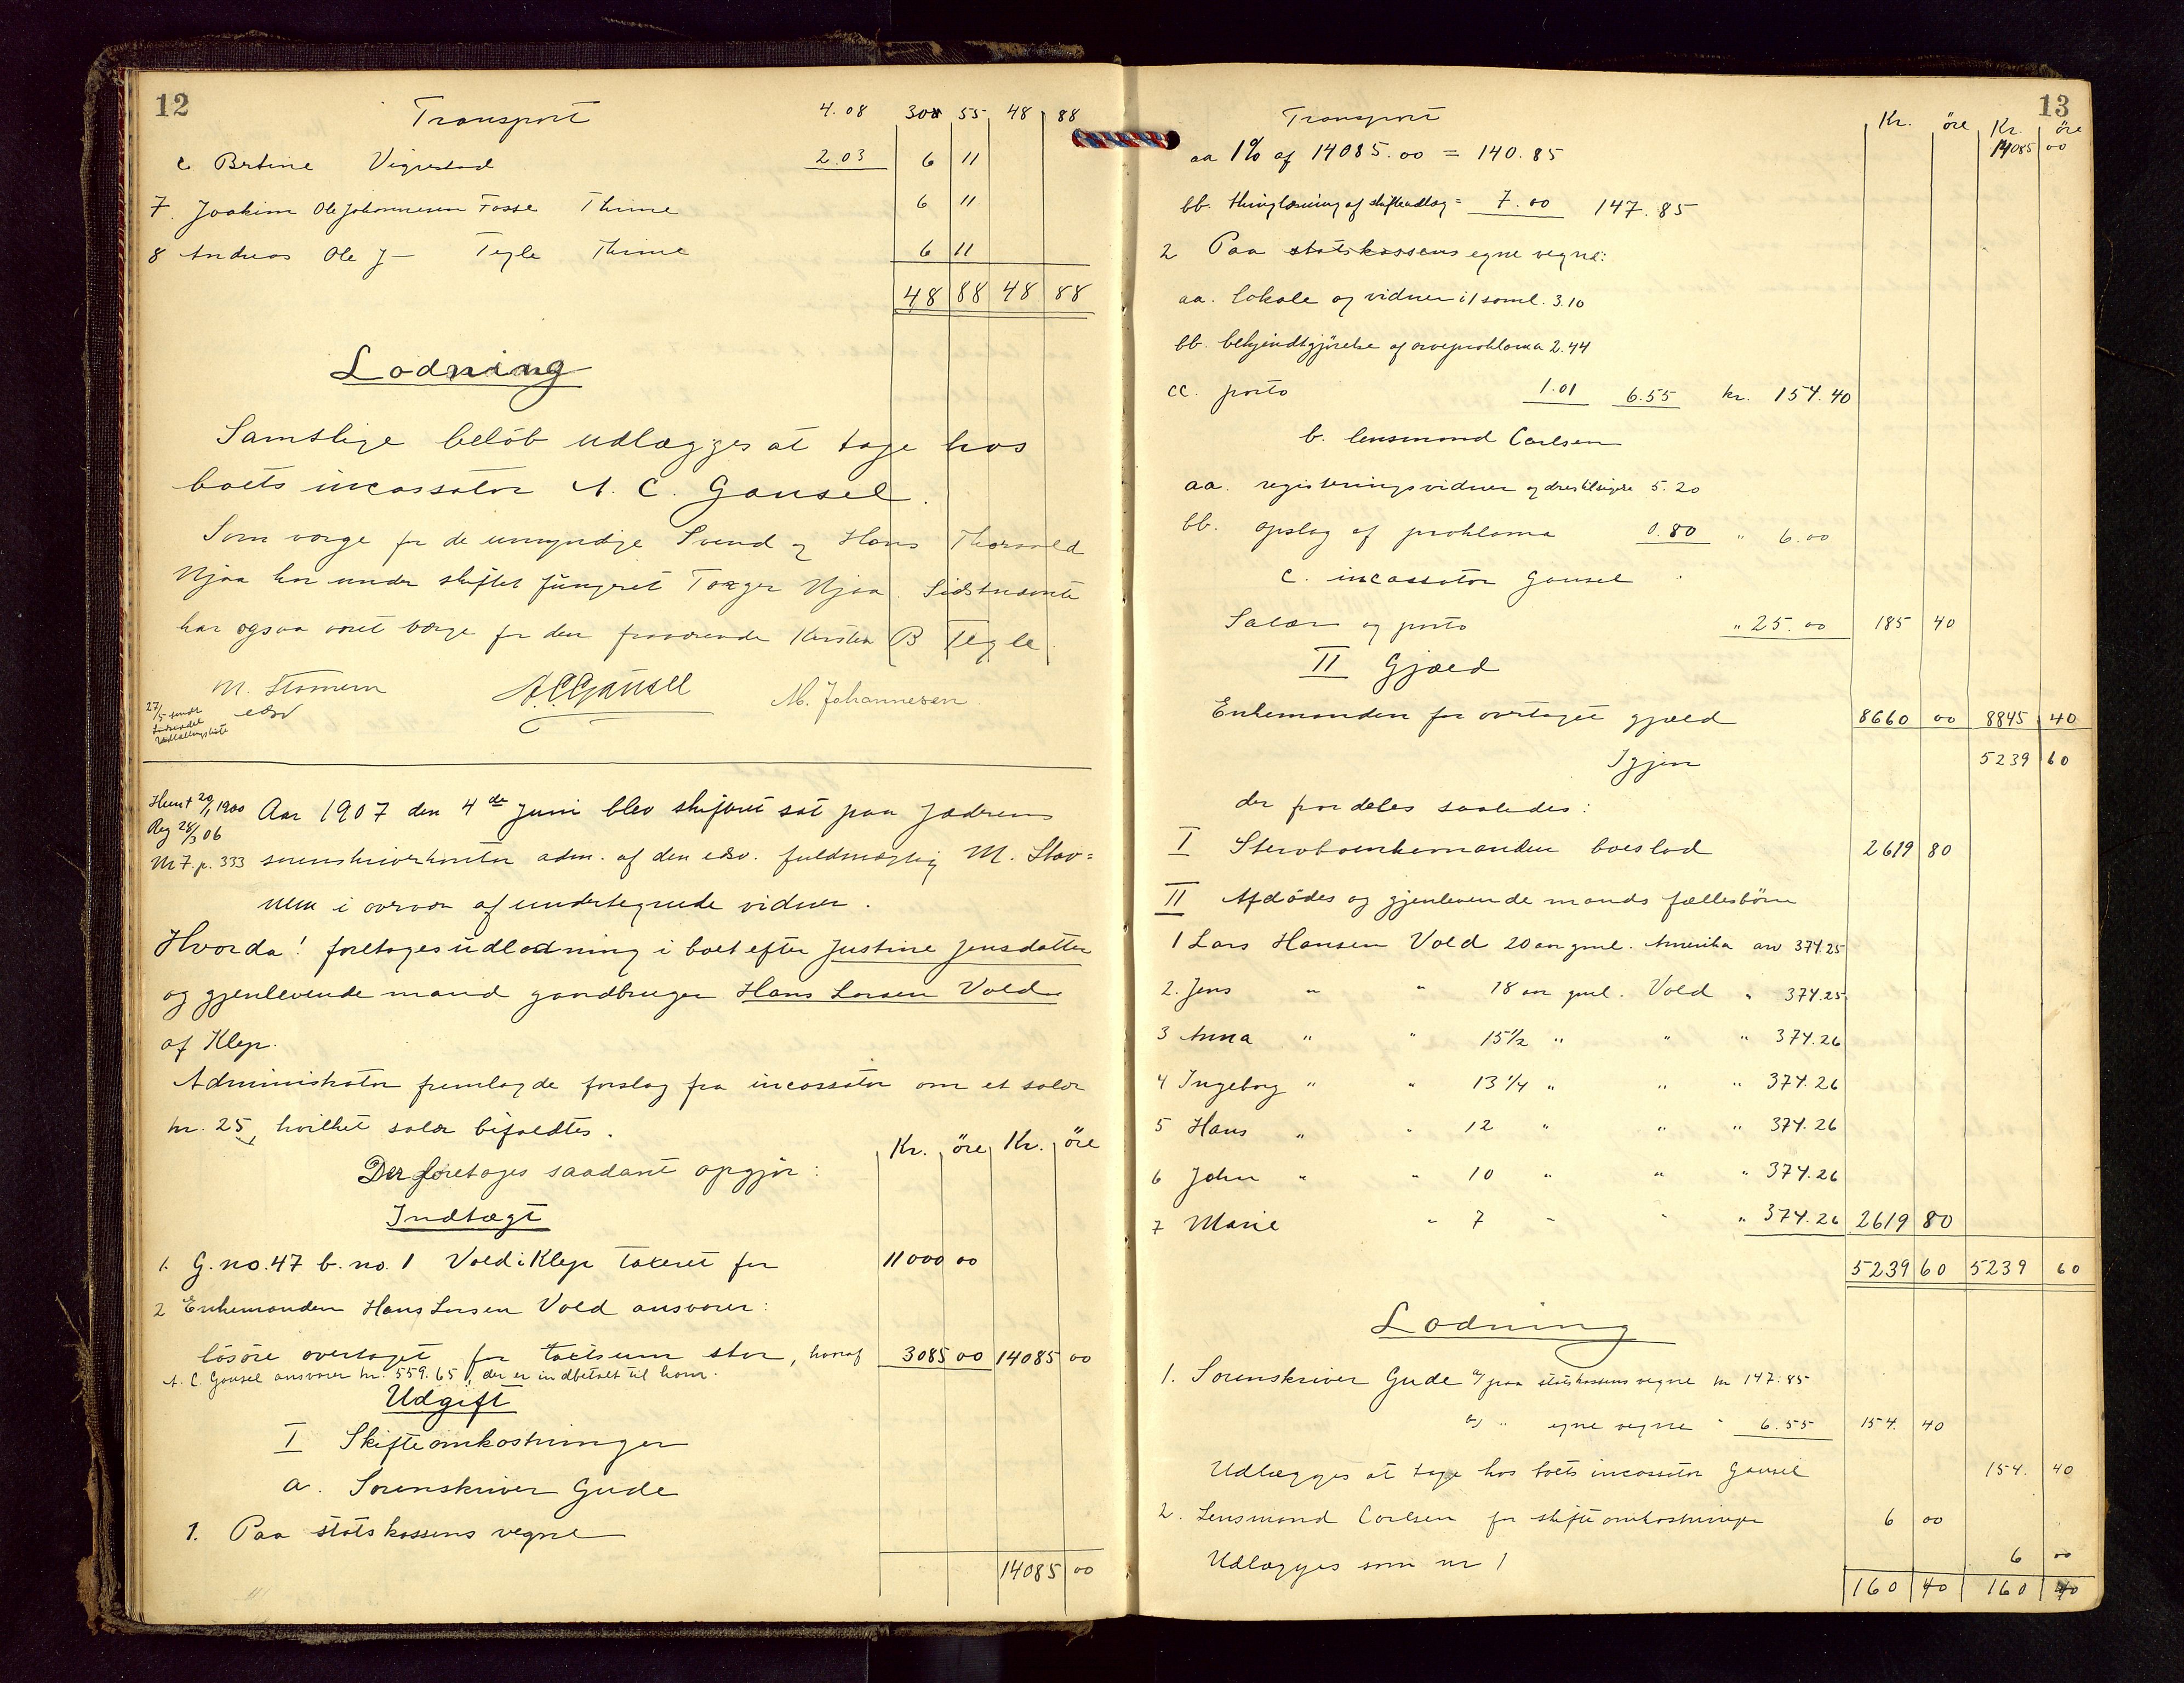 12
Transport 4.08 30 55 48 88
c Bertine Vigrestad 2.03 6 11
7. Joakim Ole Johannesen Fosse Thime 6 11
8 Andreas Ole J— Tegle Thime 6 11
48 88 48 88
Lodning
Samtlige beløb udlægges at tage hos
boets incassator A. C. Gausel.
Som værge for de umyndige Svend og Hans Thorvald
Njaa har under skiftet fungeret Torger Njaa. Sidstnævnte
har ogsaa været værge for den fraværende Kirsten B Tegle.
M. Stavnem A.C. Gausel M. Johannesen
edsv
27/5 sendt
Udlodningsliste
Hemt 29/1 1900 Aar 1907 den 4de Juni blev skifteret sat paa Jæderens
Reg 28/3 06
M 7. p. 333 sorenskriverkontor adm. af den edsv. fuldmægtig M. Stav=
nem i overvær af undertegnede vidner.
Hvorda! foretoges udlodning i boet efter Justine Jensdatter
og gjenlevende mand gaardbruger Hans Larsen Vold
af Klep.
Administrator fremlagde forslag fra incassator om et salær
kr. 25, hvilket salær bifaldtes.
Der foretoges saadant opgjør: Kr. øre Kr. øre
Indtægt
1. G.no. 47 b. no. 1 Vold i Klep taxeret for 11000 00
2 Enkemanden Hans Larsen Vold ansvarer:
løsøre overtaget for taxtsum stor, hvoraf 3085 00 14085 00
A. C. Gausel ansvarer kr. 559.65, der er indbetalt til ham.
Udgift
I Skifteomkostninger
a. Sorenskriver Gude
1. Paa statskassens vegne
14085 00
13
Transport Kr. øre Kr. øre
14085 00
aa 1% af 14085.00 = 140.85
bb. thinglæsning af skifteudlæg = 7.00 147.85
2 Paa statskassens egne vegne:
aa. lokale og vidner i 1 saml. 3.10
bb. bekjendtgjørelse af arveproklama 2.44
cc. porto 1.01 6.55 kr. 154.40
b. lensmand Carlsen
aa. registreringsvidner og 5.20
bb. opslag af proklama 0.80 " 6.00
c. incassator Gausel
Salær og porto " 25.00 185 40
II Gjæld
Enkemanden for overtaget gjæld 8660 00 8845 40
Igjen 5239 60
der fordeles saaledes:
I Stervboenkemanden boeslod 2619 80
II Afdødes og gjenlevende mands fællesbørn
1 Lars Hansen Vold 20 aar gml. Amerika arv 374.25
2. Jens " " 18 aar gml. Vold " 374.25
3 Anna " " 15 1/2 " " " 374.26
4 Ingeborg " " 13 1/4 " " " 374.26
5 Hans " " 12 " " " 374.26
6 John " " 10 " " " 374.26
7 Marie " 7 " " " 374.26 2619 80
5239 60 5239 60
Lodning
1. Sorenskriver Gude a/ paa statskassens vegne kr 147.85
b) " egne vegne " 6.55 154. 40
Udlægges at tage hos boets incassator Gausel 154. 40
2. Lensmand Carlsen for skifteomkostninger 6 00
Udlægges som nr 1 6 00
160 40 160 40